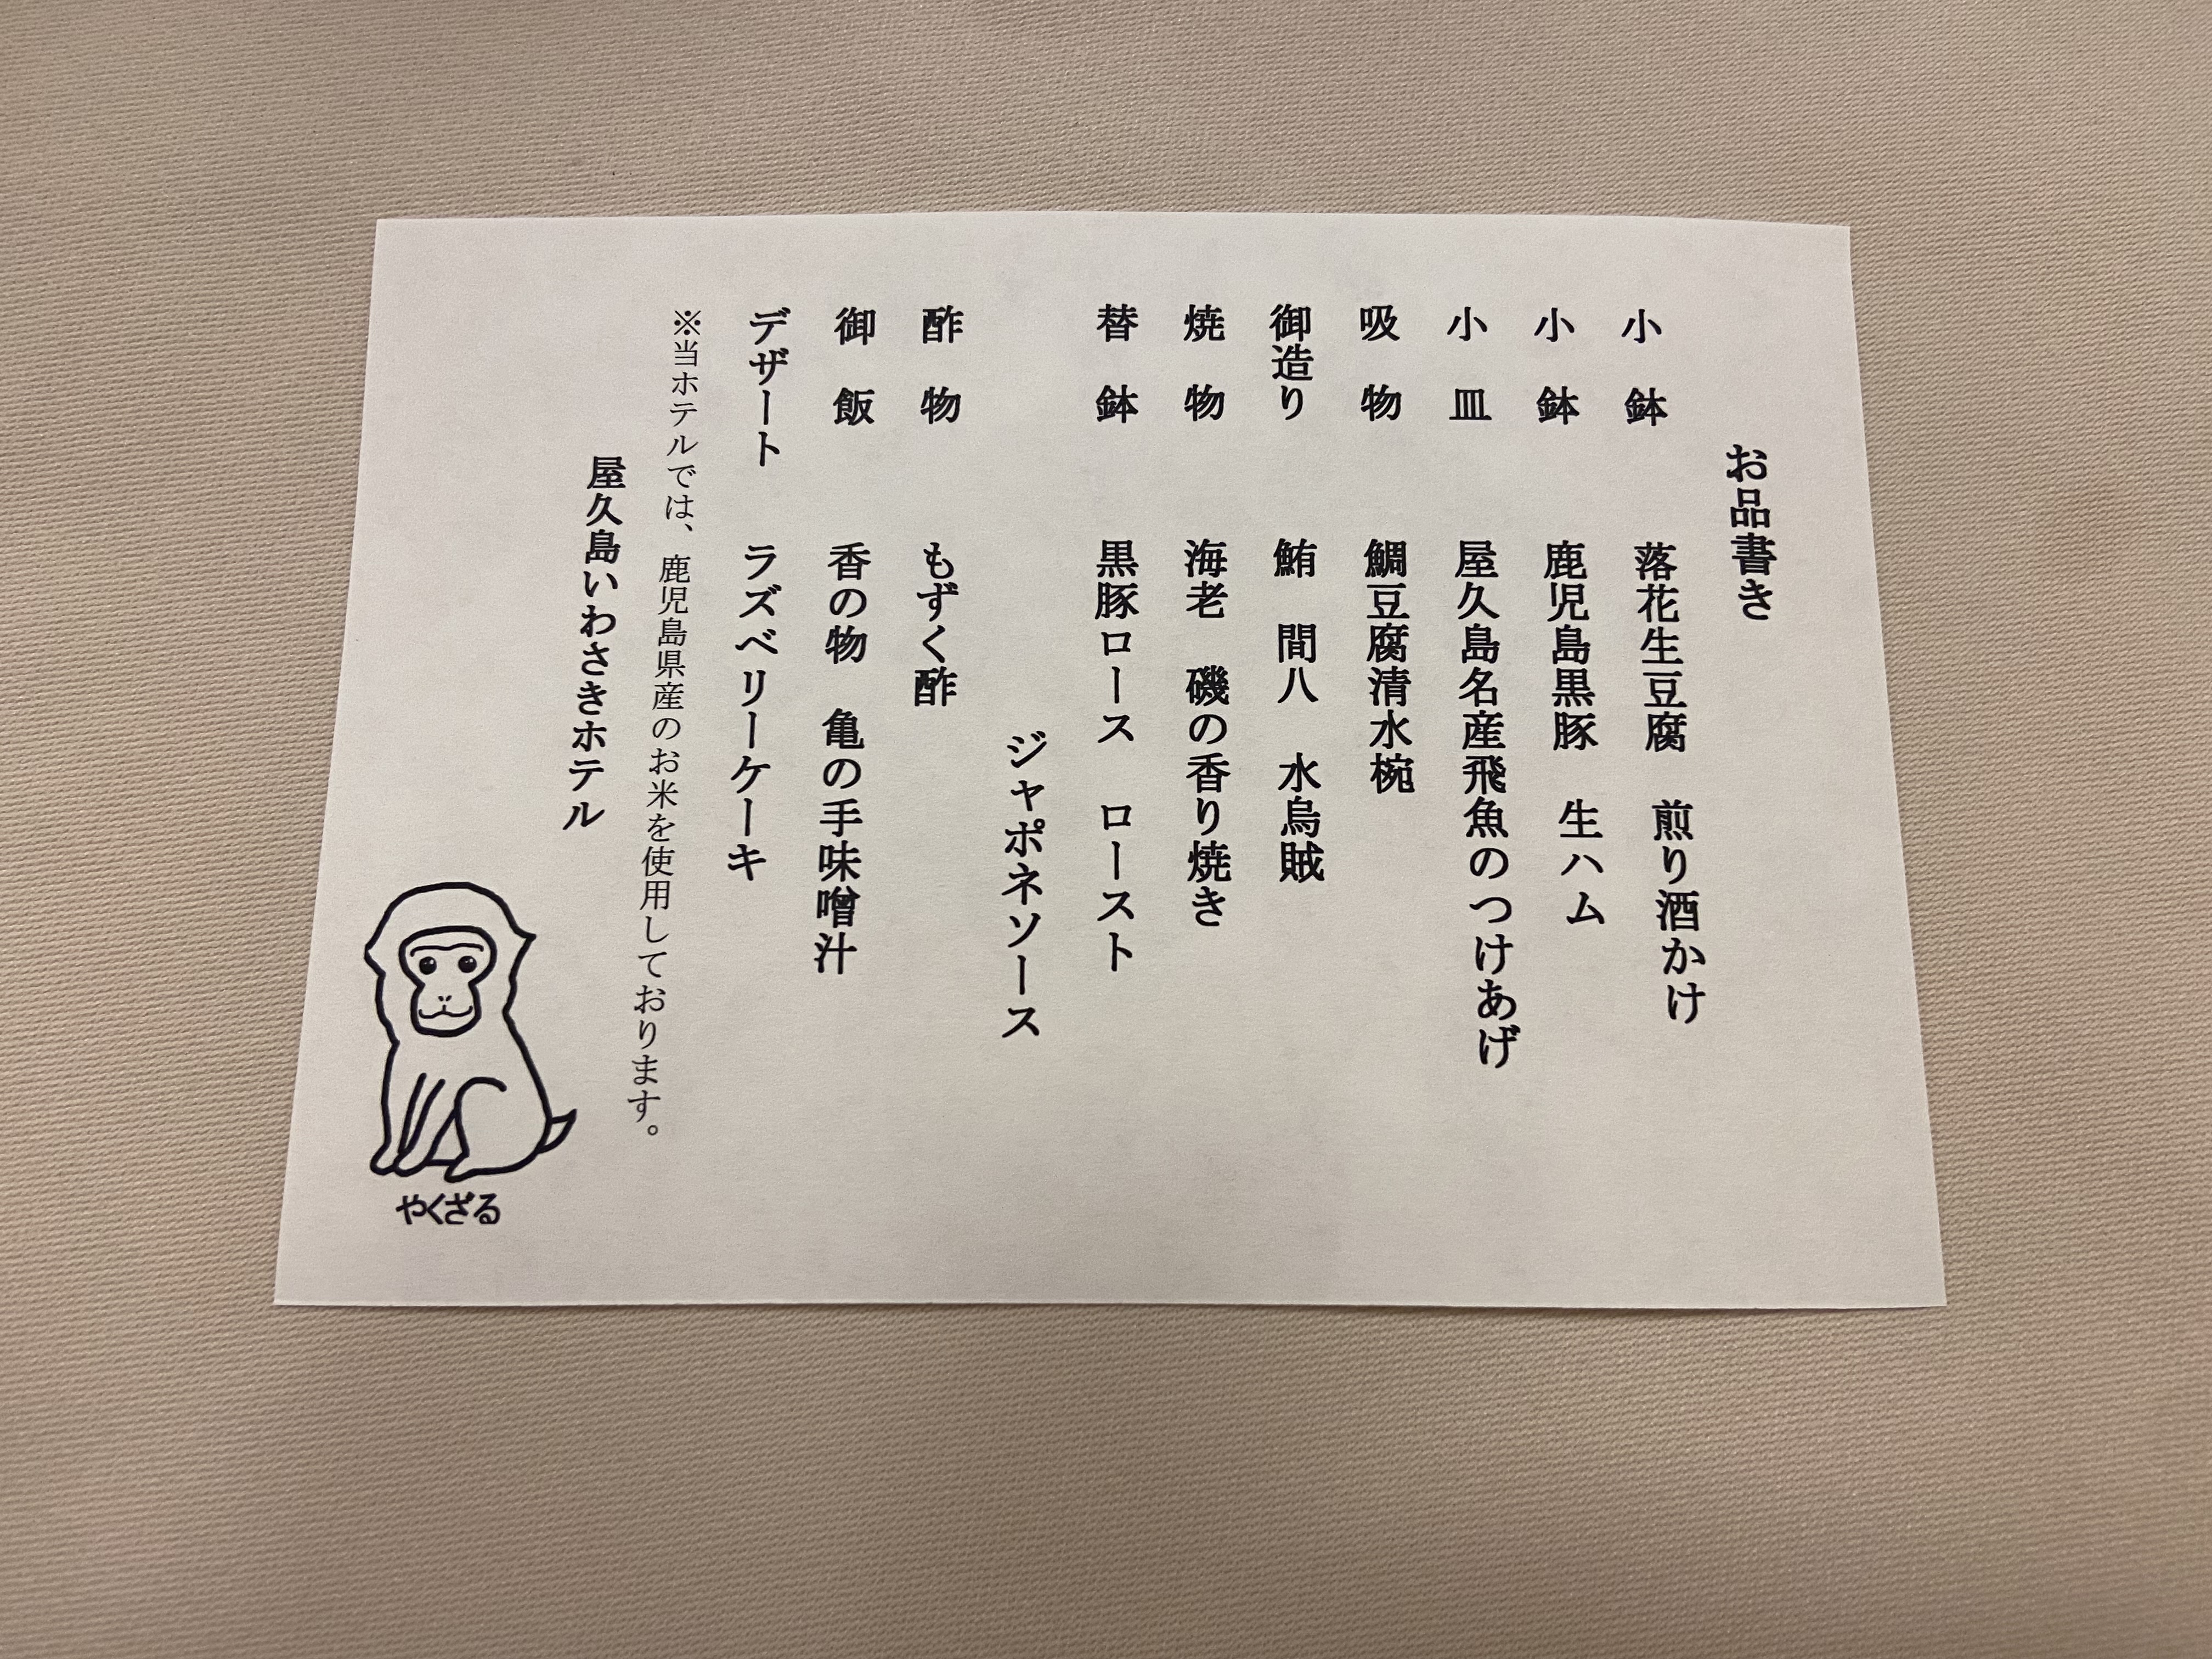 お品書き
小鉢　落花生豆腐　煎り酒かけ
小鉢　鹿児島黒豚　生ハム
小皿　屋久島名産飛魚のつけあげ
吸物　鯛豆腐清水椀
御造り　鮪　間八　水烏賊
焼物　海老　磯の香り焼き
替鉢　黒豚ロース　ロースト
ジャポネソース
酢物　もずく酢
御飯　香の物　亀の手味噌汁
デザート　ラズベリーケーキ
※当ホテルでは、鹿児島県産のお米を使用しております。
屋久島いわさきホテル
やくざる